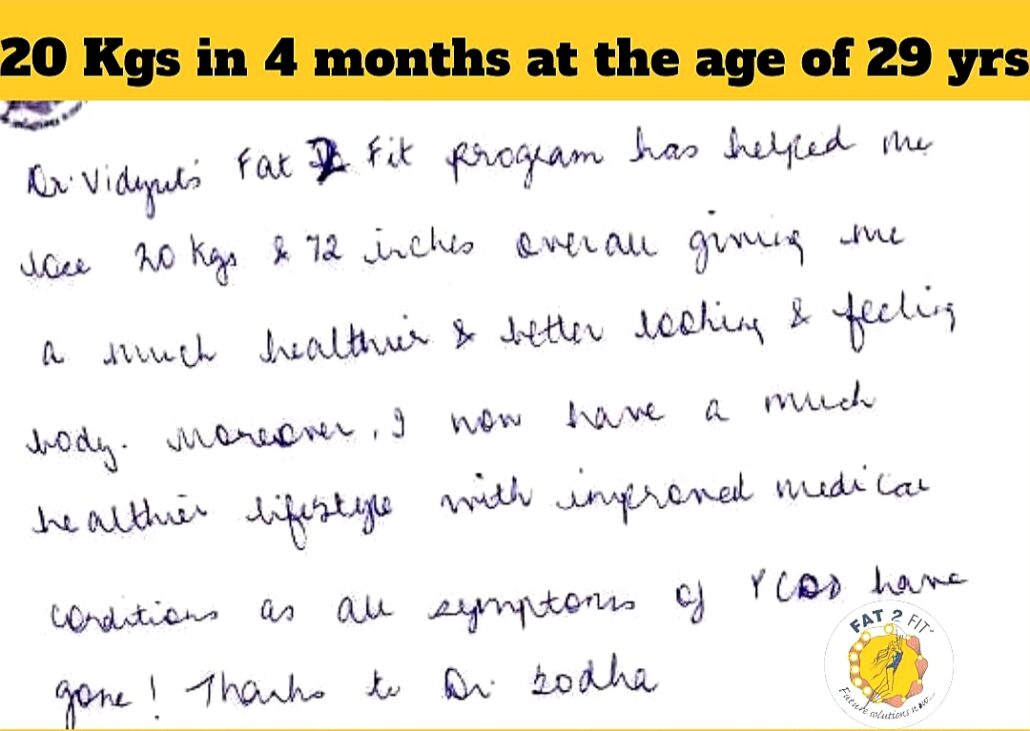 20 Kgs in 4 months at the age of 29 yrs
Dr. Vidyut's Fat 2 Fit program has helped me
lose 20 kgs & 72 inches overall giving me
a much healthier & better looking & feeling
body. Moreover, I now have a much
healthier lifestyle with improved medical
conditions as all symptoms of PCOD have
gone! Thanks to Dr. Sodha
FAT 2 FIT
Future solutions now...